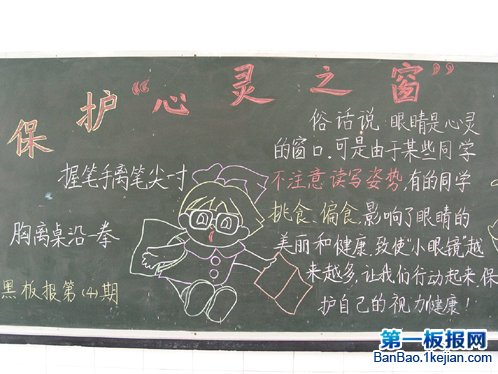 保护“心灵之窗”
握笔手离笔尖一寸
胸离桌沿一拳
黑板报第(4)期
俗话说:眼睛是心灵
的窗口,可是由于某些同学
不注意读写姿势,有的同学
挑食、偏食,影响了眼睛的
美丽和健康,致使“小眼镜”越
来越多,让我们行动起来,保
护自己的视力健康!
第一板报网
BanBao.1kejian.com